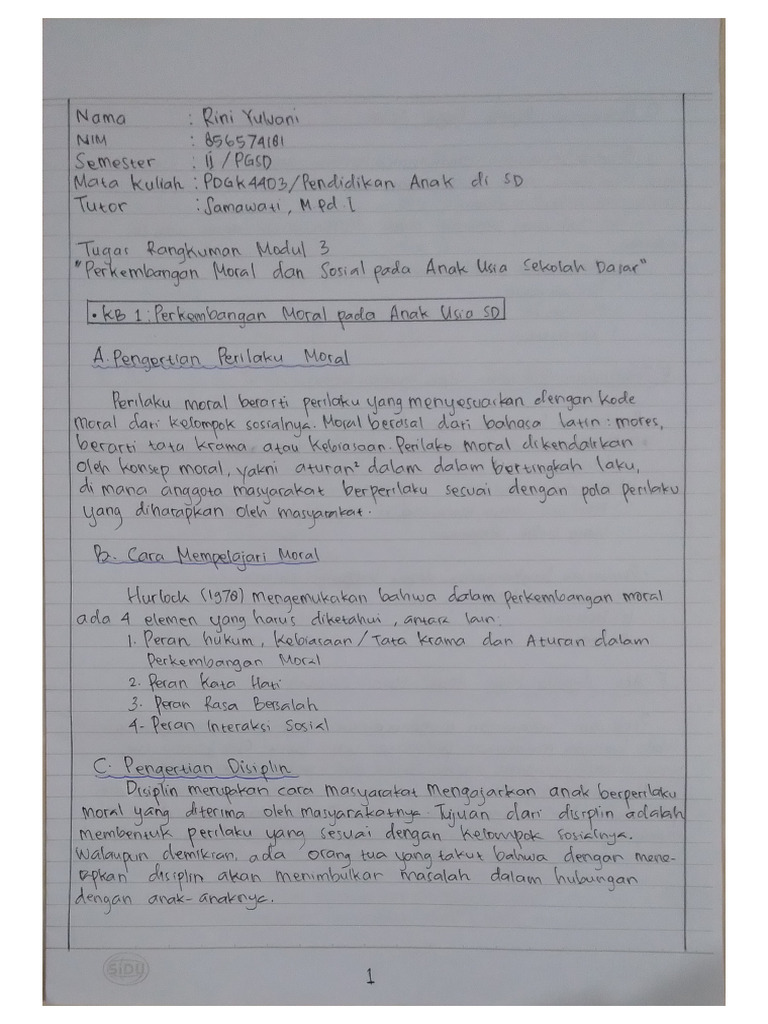 Nama : Rini Yulvani
NIM : 856574181
Semester : II / PGSD
Mata Kuliah : PDGK4403/Pendidikan Anak di SD
Tutor : Samawati, M.Pd.I
Tugas Rangkuman Modul 3
"Perkembangan Moral dan Sosial pada Anak Usia Sekolah Dasar"
• KB 1 : Perkembangan Moral pada Anak Usia SD
A. Pengertian Perilaku Moral
Perilaku moral berarti perilaku yang menyesuaikan dengan kode
moral dari kelompok sosialnya. Moral berasal dari bahasa latin : mores,
berarti tata krama atau kebiasaan. Perilako moral dikendalikan
oleh konsep moral, yakni aturan² dalam dalam bertingkah laku,
di mana anggota masyarakat berperilaku sesuai dengan pola perilaku
yang diharapkan oleh masyarakat.
B. Cara Mempelajari Moral
Hurlock (1978) mengemukakan bahwa dalam perkembangan moral
ada 4 elemen yang harus diketahui, antara lain:
1. Peran hukum, Kebiasaan / Tata krama dan Aturan dalam
Perkembangan Moral
2. Peran Kata Hati
3. Peran Rasa Bersalah
4. Peran Interaksi Sosial
C. Pengertian Disiplin
Disiplin merupakan cara masyarakat Mengajarkan anak berperilaku
moral yang diterima oleh masyarakatnya. Tujuan dari disiplin adalah
membentuk perilaku yang sesuai dengan kelompok sosialnya.
Walaupun demikian, ada orang tua yang takut bahwa dengan mene-
apkan disiplin akan menimbulkar masalah dalam hubungan
dengan anak-anaknya.
SIDU
1